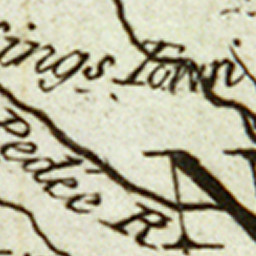 sings Town
Pedee R
N